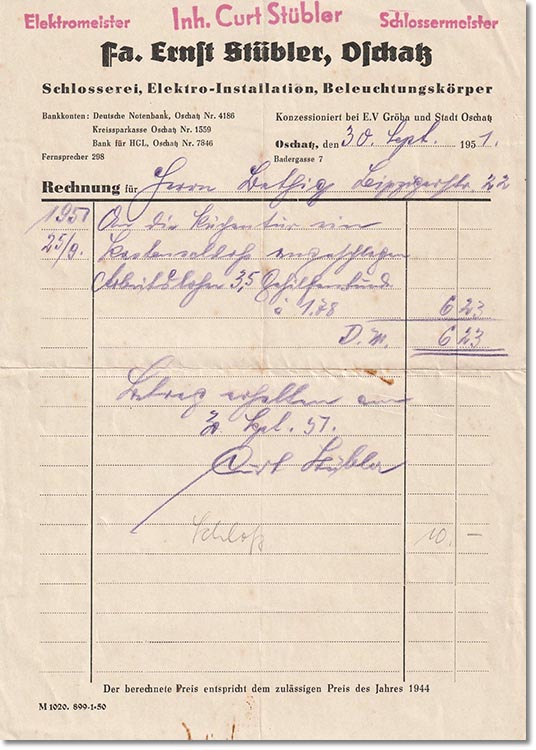 Elektromeister Inh. Curt Stübler Schlossermeister
Fa. Ernst Stübler, Oschatz
Schlosserei, Elektro-Installation, Beleuchtungskörper
Bankkonten: Deutsche Notenbank, Oschatz Nr. 4186
Kreissparkasse Oschatz Nr. 1559
Bank für HGL, Oschatz Nr. 7846
Fernsprecher 298
Konzessioniert bei E.V Gröba und Stadt Oschatz
Oschatz, den 30. Sept. 1951.
Badergasse 7
Rechnung für Herrn Leipzigerstr. 22
1951 An die Küchentür ein
25/9. Kastenschloß angeschlagen
Arbeitslohn 3,5 Gehilfenstund
à 1.78 6 23
D.M. 6 23
Betrag erhalten am
Sept. 51.
Curt Stübler
Schloß 10. –
Der berechnete Preis entspricht dem zulässigen Preis des Jahres 1944
M 1020. 899-1-50